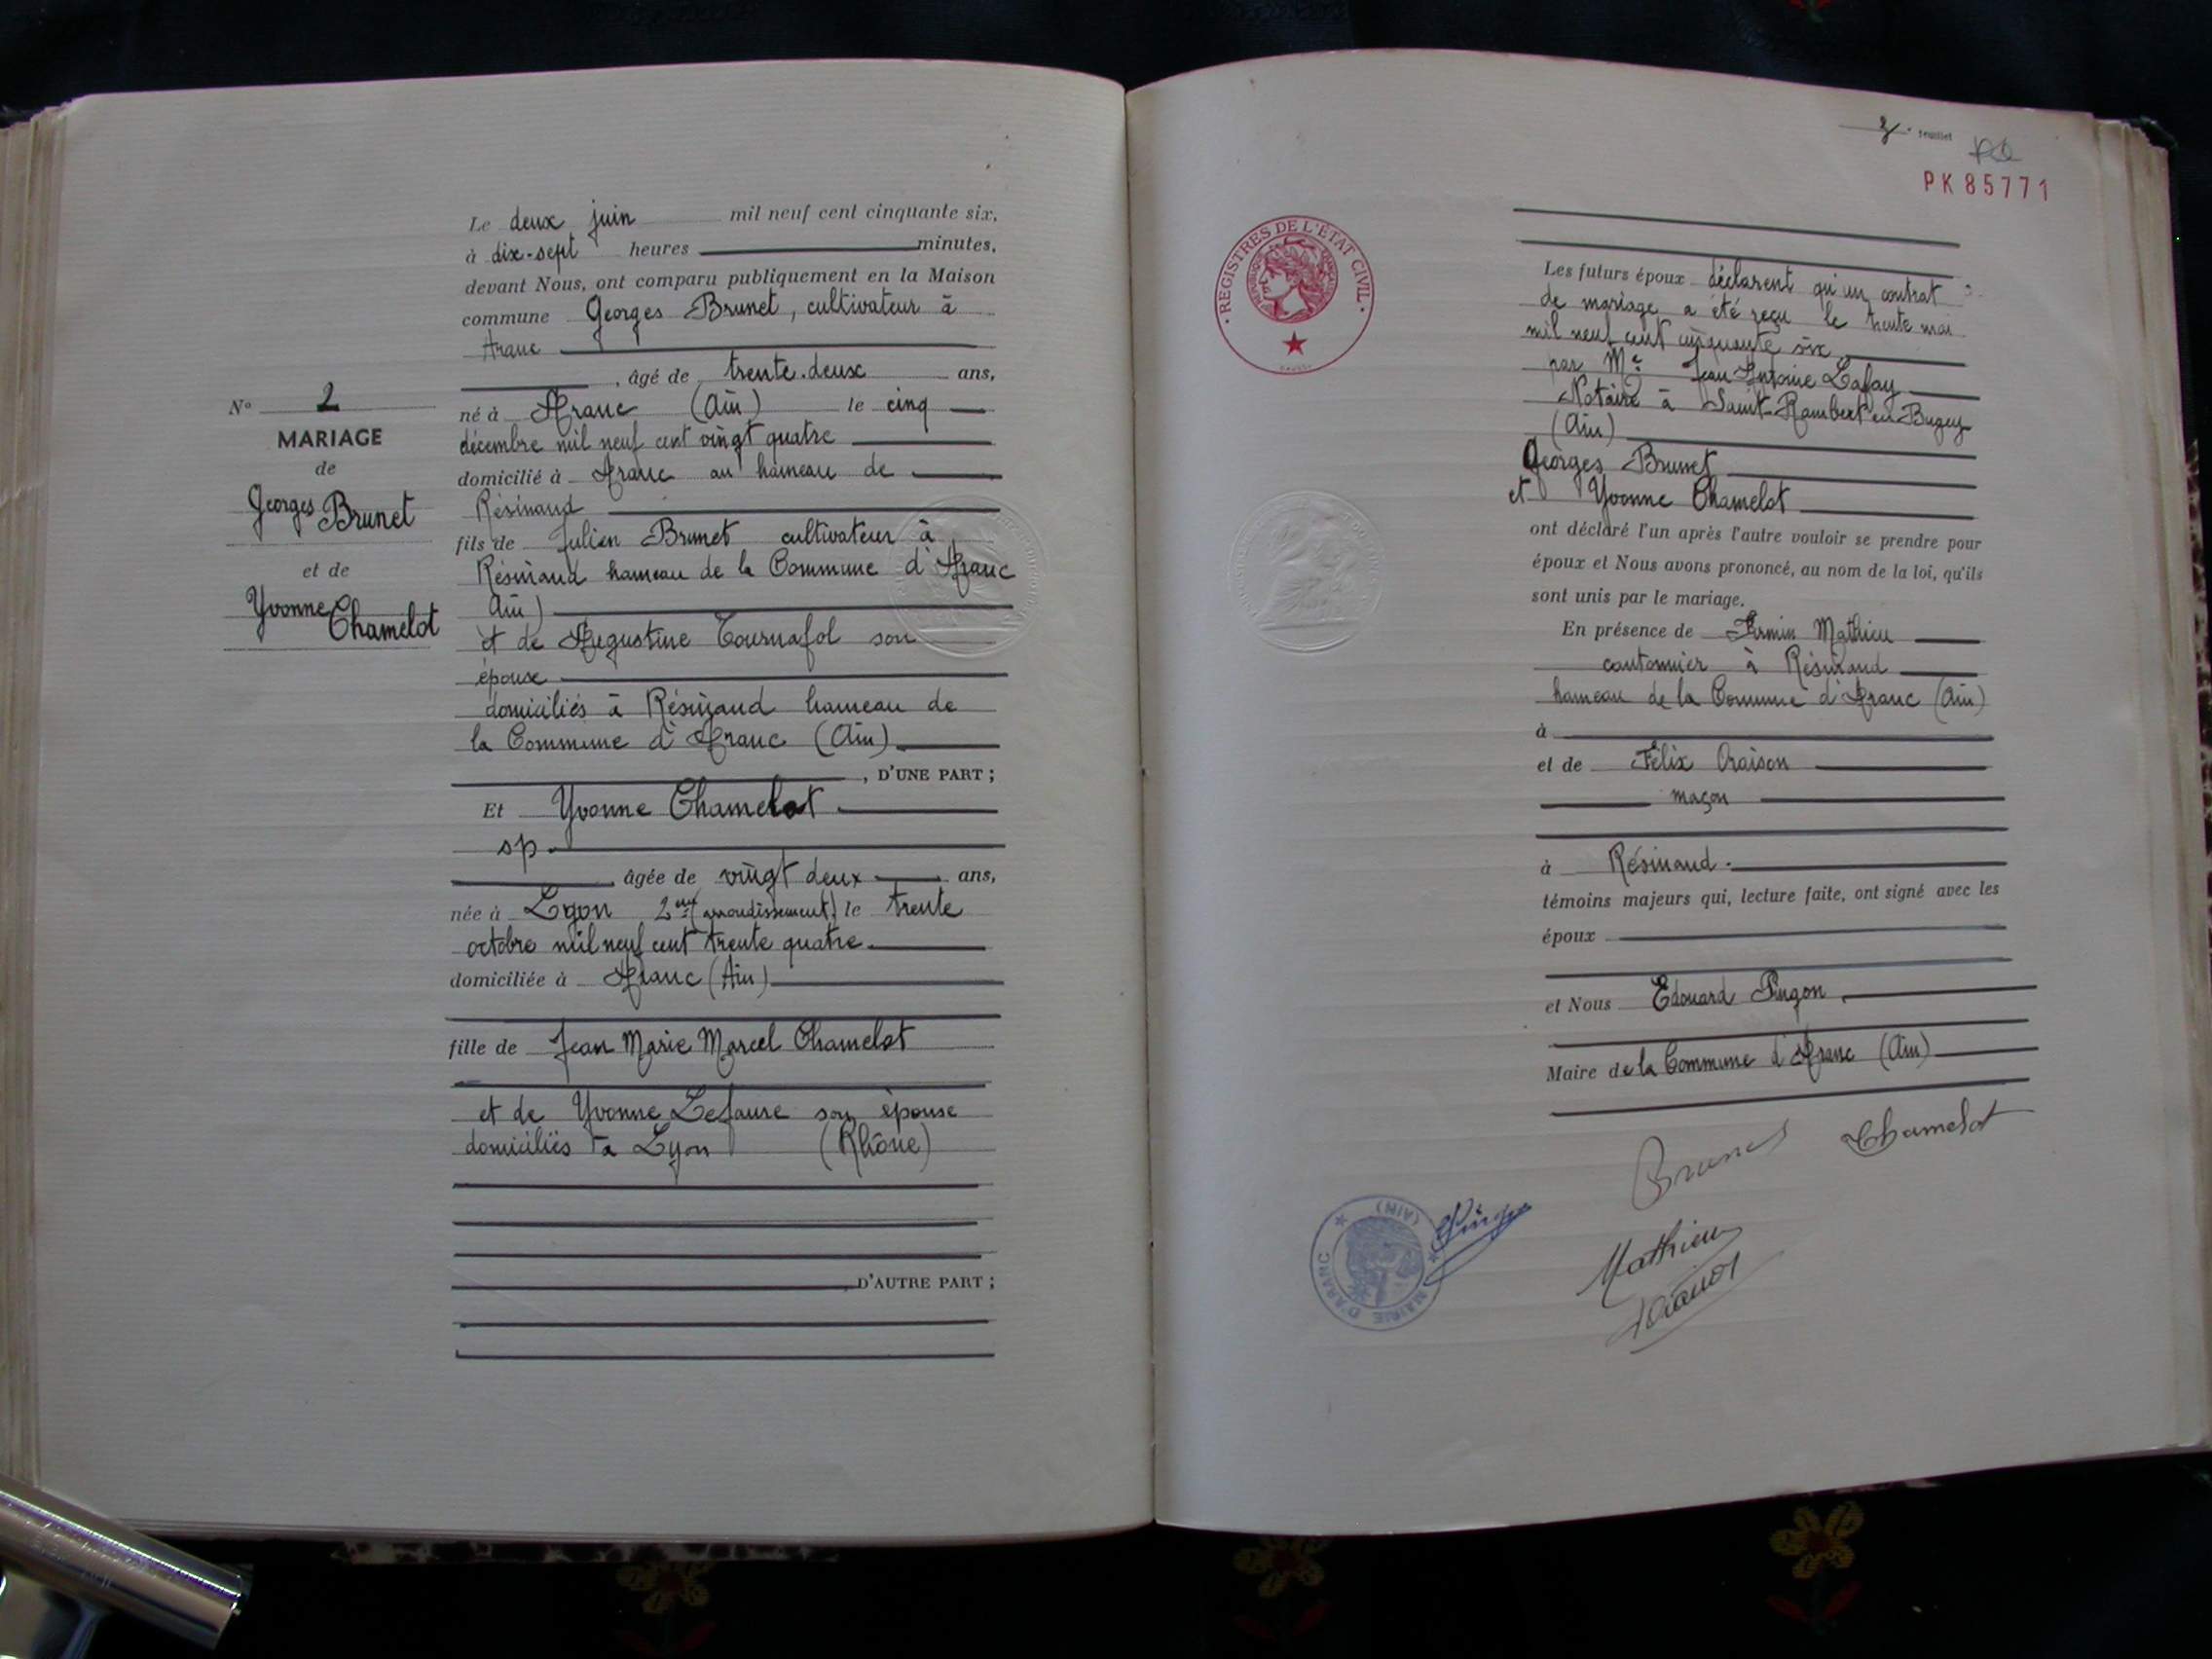 Le deux juin mil neuf cent cinquante six,
à dix-sept heures minutes,
devant Nous, ont comparu publiquement en la Maison
commune Georges Brunet, cultivateur à
Aranc
, âgé de trente-deux ans,
né à Aranc (Ain) le cinq
décembre mil neuf cent vingt quatre
domicilié à Aranc au hameau de
Résinand
fils de Julien Brunet cultivateur à
Résinand hameau de la Commune d'Aranc
Ain)
et de Augustine Tournafol son
épouse
domiciliés à Résinand hameau de
la Commune d'Aranc (Ain).
, D'UNE PART ;
Et Yvonne Chamelot
sp.
âgée de vingt deux ans,
née à Lyon 2me (arrondissement) le trente
octobre mil neuf cent trente quatre.
domiciliée à Aranc (Ain)
fille de Jean Marie Marcel Chamelot
et de Yvonne Lefaure son épouse
domiciliés à Lyon (Rhône)
D'AUTRE PART ;
N° 2
MARIAGE
de
Georges Brunet
et de
Yvonne Chamelot
feuillet
PK 85771
REGISTRES DE L'ÉTAT CIVIL
Les futurs époux déclarent qu'un contrat
de mariage a été reçu le trente mai
mil neuf cent cinquante six
par Me Jean Antoine Lafay
Notaire à Saint-Rambert en Bugey
(Ain)
Georges Brunet
et Yvonne Chamelot
ont déclaré l'un après l'autre vouloir se prendre pour
époux et Nous avons prononcé, au nom de la loi, qu'ils
sont unis par le mariage.
En présence de Firmin Mathieu
cantonnier à Résinand
hameau de la Commune d'Aranc (Ain)
à
et de Félix Oraison
maçon
à Résinand.
témoins majeurs qui, lecture faite, ont signé avec les
époux
et Nous Edouard Pingon,
Maire de la Commune d'Aranc (Ain)
Brunet Chamelot
Mathieu
MAIRIE D'ARANC (AIN)